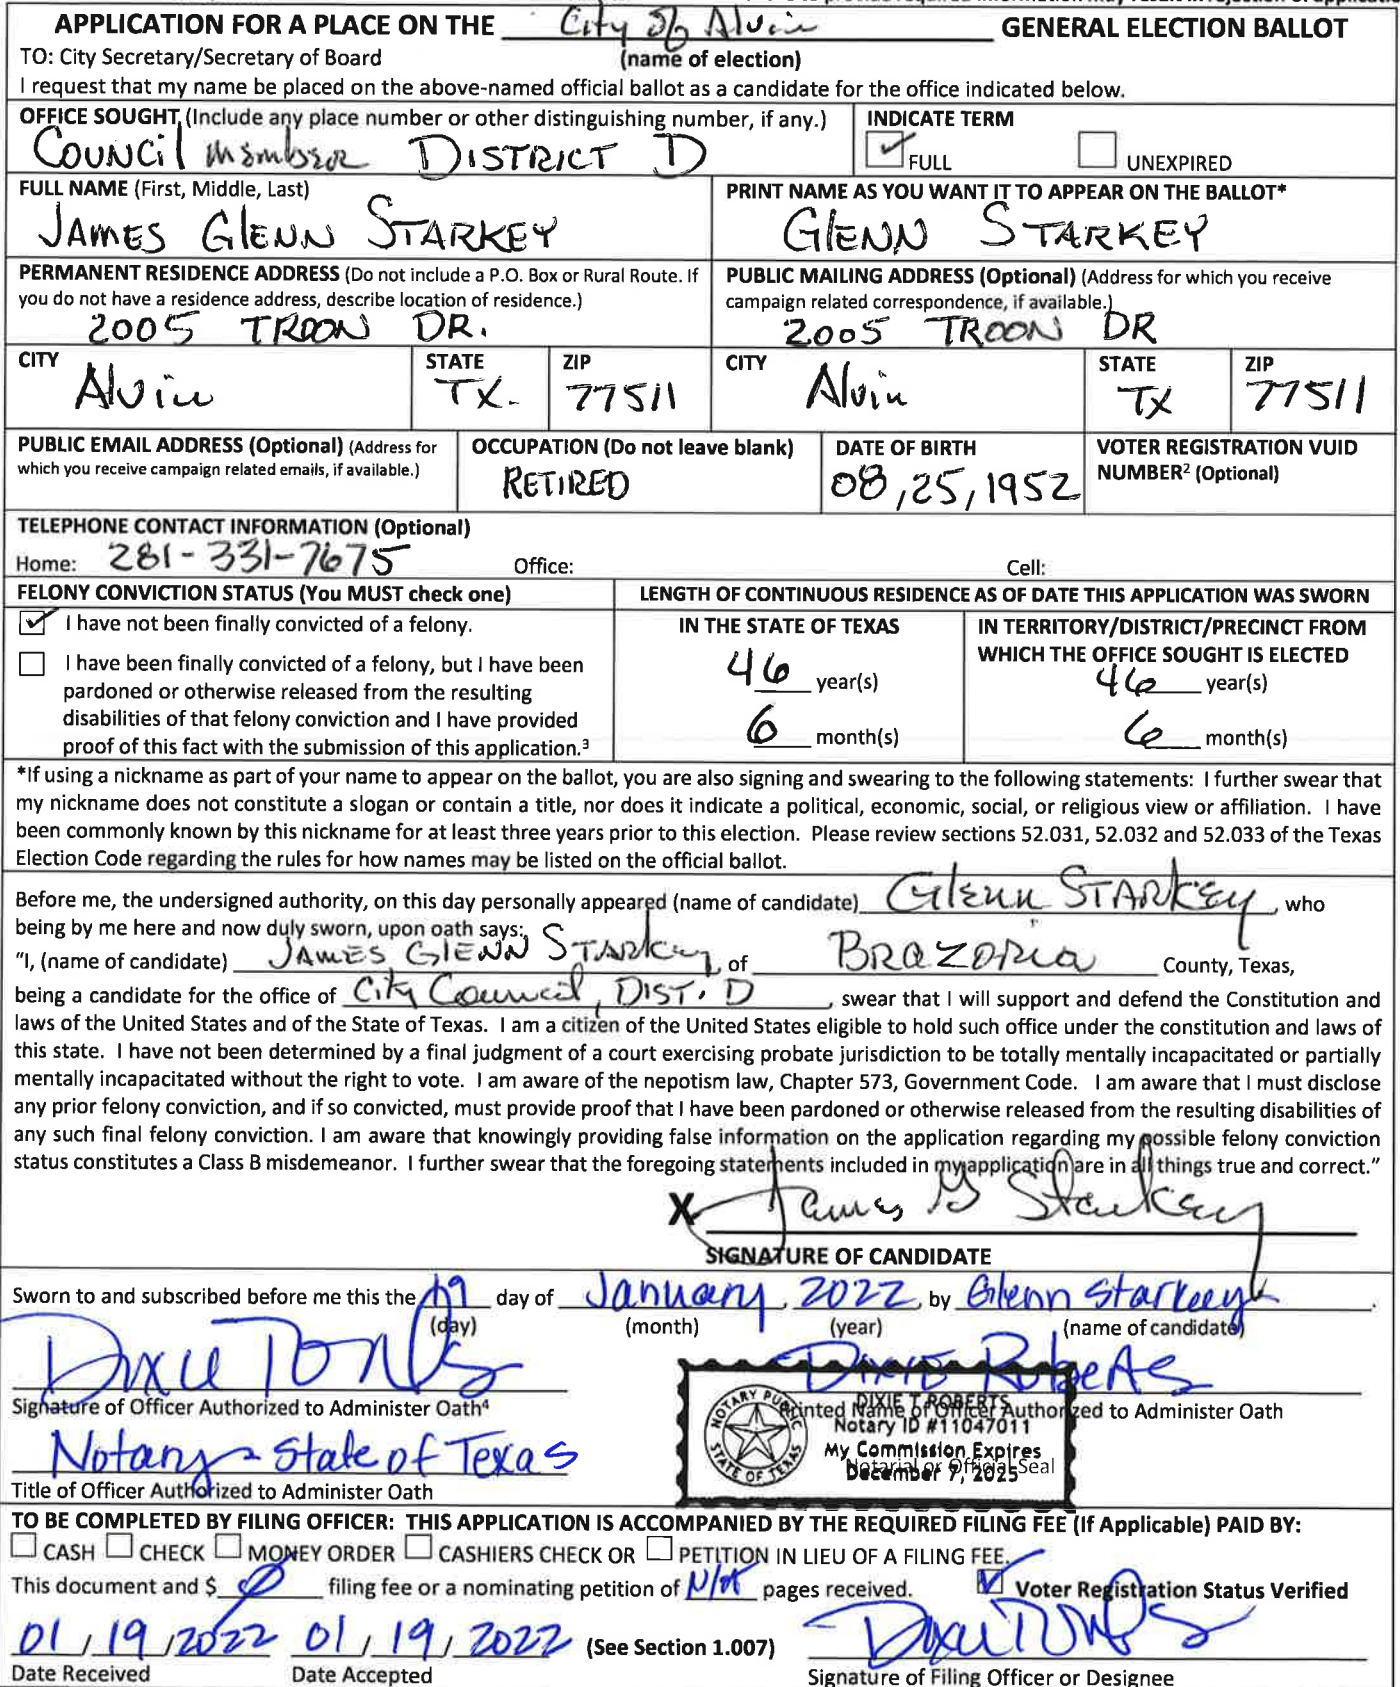 APPLICATION FOR A PLACE ON THE City of Alvin GENERAL ELECTION BALLOT
TO: City Secretary/Secretary of Board (name of election)
I request that my name be placed on the above-named official ballot as a candidate for the office indicated below.
OFFICE SOUGHT (Include any place number or other distinguishing number, if any.)
Council Member District D
INDICATE TERM
FULL UNEXPIRED
FULL NAME (First, Middle, Last)
JAMES GLENN STARKEY
PRINT NAME AS YOU WANT IT TO APPEAR ON THE BALLOT*
GLENN STARKEY
PERMANENT RESIDENCE ADDRESS (Do not include a P.O. Box or Rural Route. If
you do not have a residence address, describe location of residence.)
2005 TROON DR.
PUBLIC MAILING ADDRESS (Optional) (Address for which you receive
campaign related correspondence, if available.)
2005 TROON DR
CITY
Alvin
STATE
TX.
ZIP
77511
CITY
Alvin
STATE
TX
ZIP
77511
PUBLIC EMAIL ADDRESS (Optional) (Address for
which you receive campaign related emails, if available.)
OCCUPATION (Do not leave blank)
RETIRED
DATE OF BIRTH
08,25,1952
VOTER REGISTRATION VUID
NUMBER² (Optional)
TELEPHONE CONTACT INFORMATION (Optional)
Home: 281-331-7675 Office: Cell:
FELONY CONVICTION STATUS (You MUST check one)
I have not been finally convicted of a felony.
I have been finally convicted of a felony, but I have been
pardoned or otherwise released from the resulting
disabilities of that felony conviction and I have provided
proof of this fact with the submission of this application.³
LENGTH OF CONTINUOUS RESIDENCE AS OF DATE THIS APPLICATION WAS SWORN
IN THE STATE OF TEXAS
46 year(s)
6 month(s)
IN TERRITORY/DISTRICT/PRECINCT FROM
WHICH THE OFFICE SOUGHT IS ELECTED
46 year(s)
6 month(s)
*If using a nickname as part of your name to appear on the ballot, you are also signing and swearing to the following statements: I further swear that
my nickname does not constitute a slogan or contain a title, nor does it indicate a political, economic, social, or religious view or affiliation. I have
been commonly known by this nickname for at least three years prior to this election. Please review sections 52.031, 52.032 and 52.033 of the Texas
Election Code regarding the rules for how names may be listed on the official ballot.
Before me, the undersigned authority, on this day personally appeared (name of candidate) Glenn STARKEY, who
being by me here and now duly sworn, upon oath says:
"I, (name of candidate) JAMES GLENN STARKEY, of BRAZORIA County, Texas,
being a candidate for the office of City Council, DIST. D, swear that I will support and defend the Constitution and
laws of the United States and of the State of Texas. I am a citizen of the United States eligible to hold such office under the constitution and laws of
this state. I have not been determined by a final judgment of a court exercising probate jurisdiction to be totally mentally incapacitated or partially
mentally incapacitated without the right to vote. I am aware of the nepotism law, Chapter 573, Government Code. I am aware that I must disclose
any prior felony conviction, and if so convicted, must provide proof that I have been pardoned or otherwise released from the resulting disabilities of
any such final felony conviction. I am aware that knowingly providing false information on the application regarding my possible felony conviction
status constitutes a Class B misdemeanor. I further swear that the foregoing statements included in my application are in all things true and correct."
X James G Starkey
SIGNATURE OF CANDIDATE
Sworn to and subscribed before me this the 19 day of January, 2022, by Glenn Starkey.
(day) (month) (year) (name of candidate)
Dixie Roberts
Signature of Officer Authorized to Administer Oath⁴
Printed Name of Officer Authorized to Administer Oath
NOTARY PUBLIC
STATE OF TEXAS
DIXIE T ROBERTS
Notary ID #11047011
My Commission Expires
December 7, 2025
Notarial or Official Seal
Notary - State of Texas
Title of Officer Authorized to Administer Oath
TO BE COMPLETED BY FILING OFFICER: THIS APPLICATION IS ACCOMPANIED BY THE REQUIRED FILING FEE (If Applicable) PAID BY:
CASH CHECK MONEY ORDER CASHIERS CHECK OR PETITION IN LIEU OF A FILING FEE.
This document and $ 0 filing fee or a nominating petition of N/A pages received. Voter Registration Status Verified
01/19/2022 01/19/2022 (See Section 1.007)
Date Received Date Accepted Signature of Filing Officer or Designee